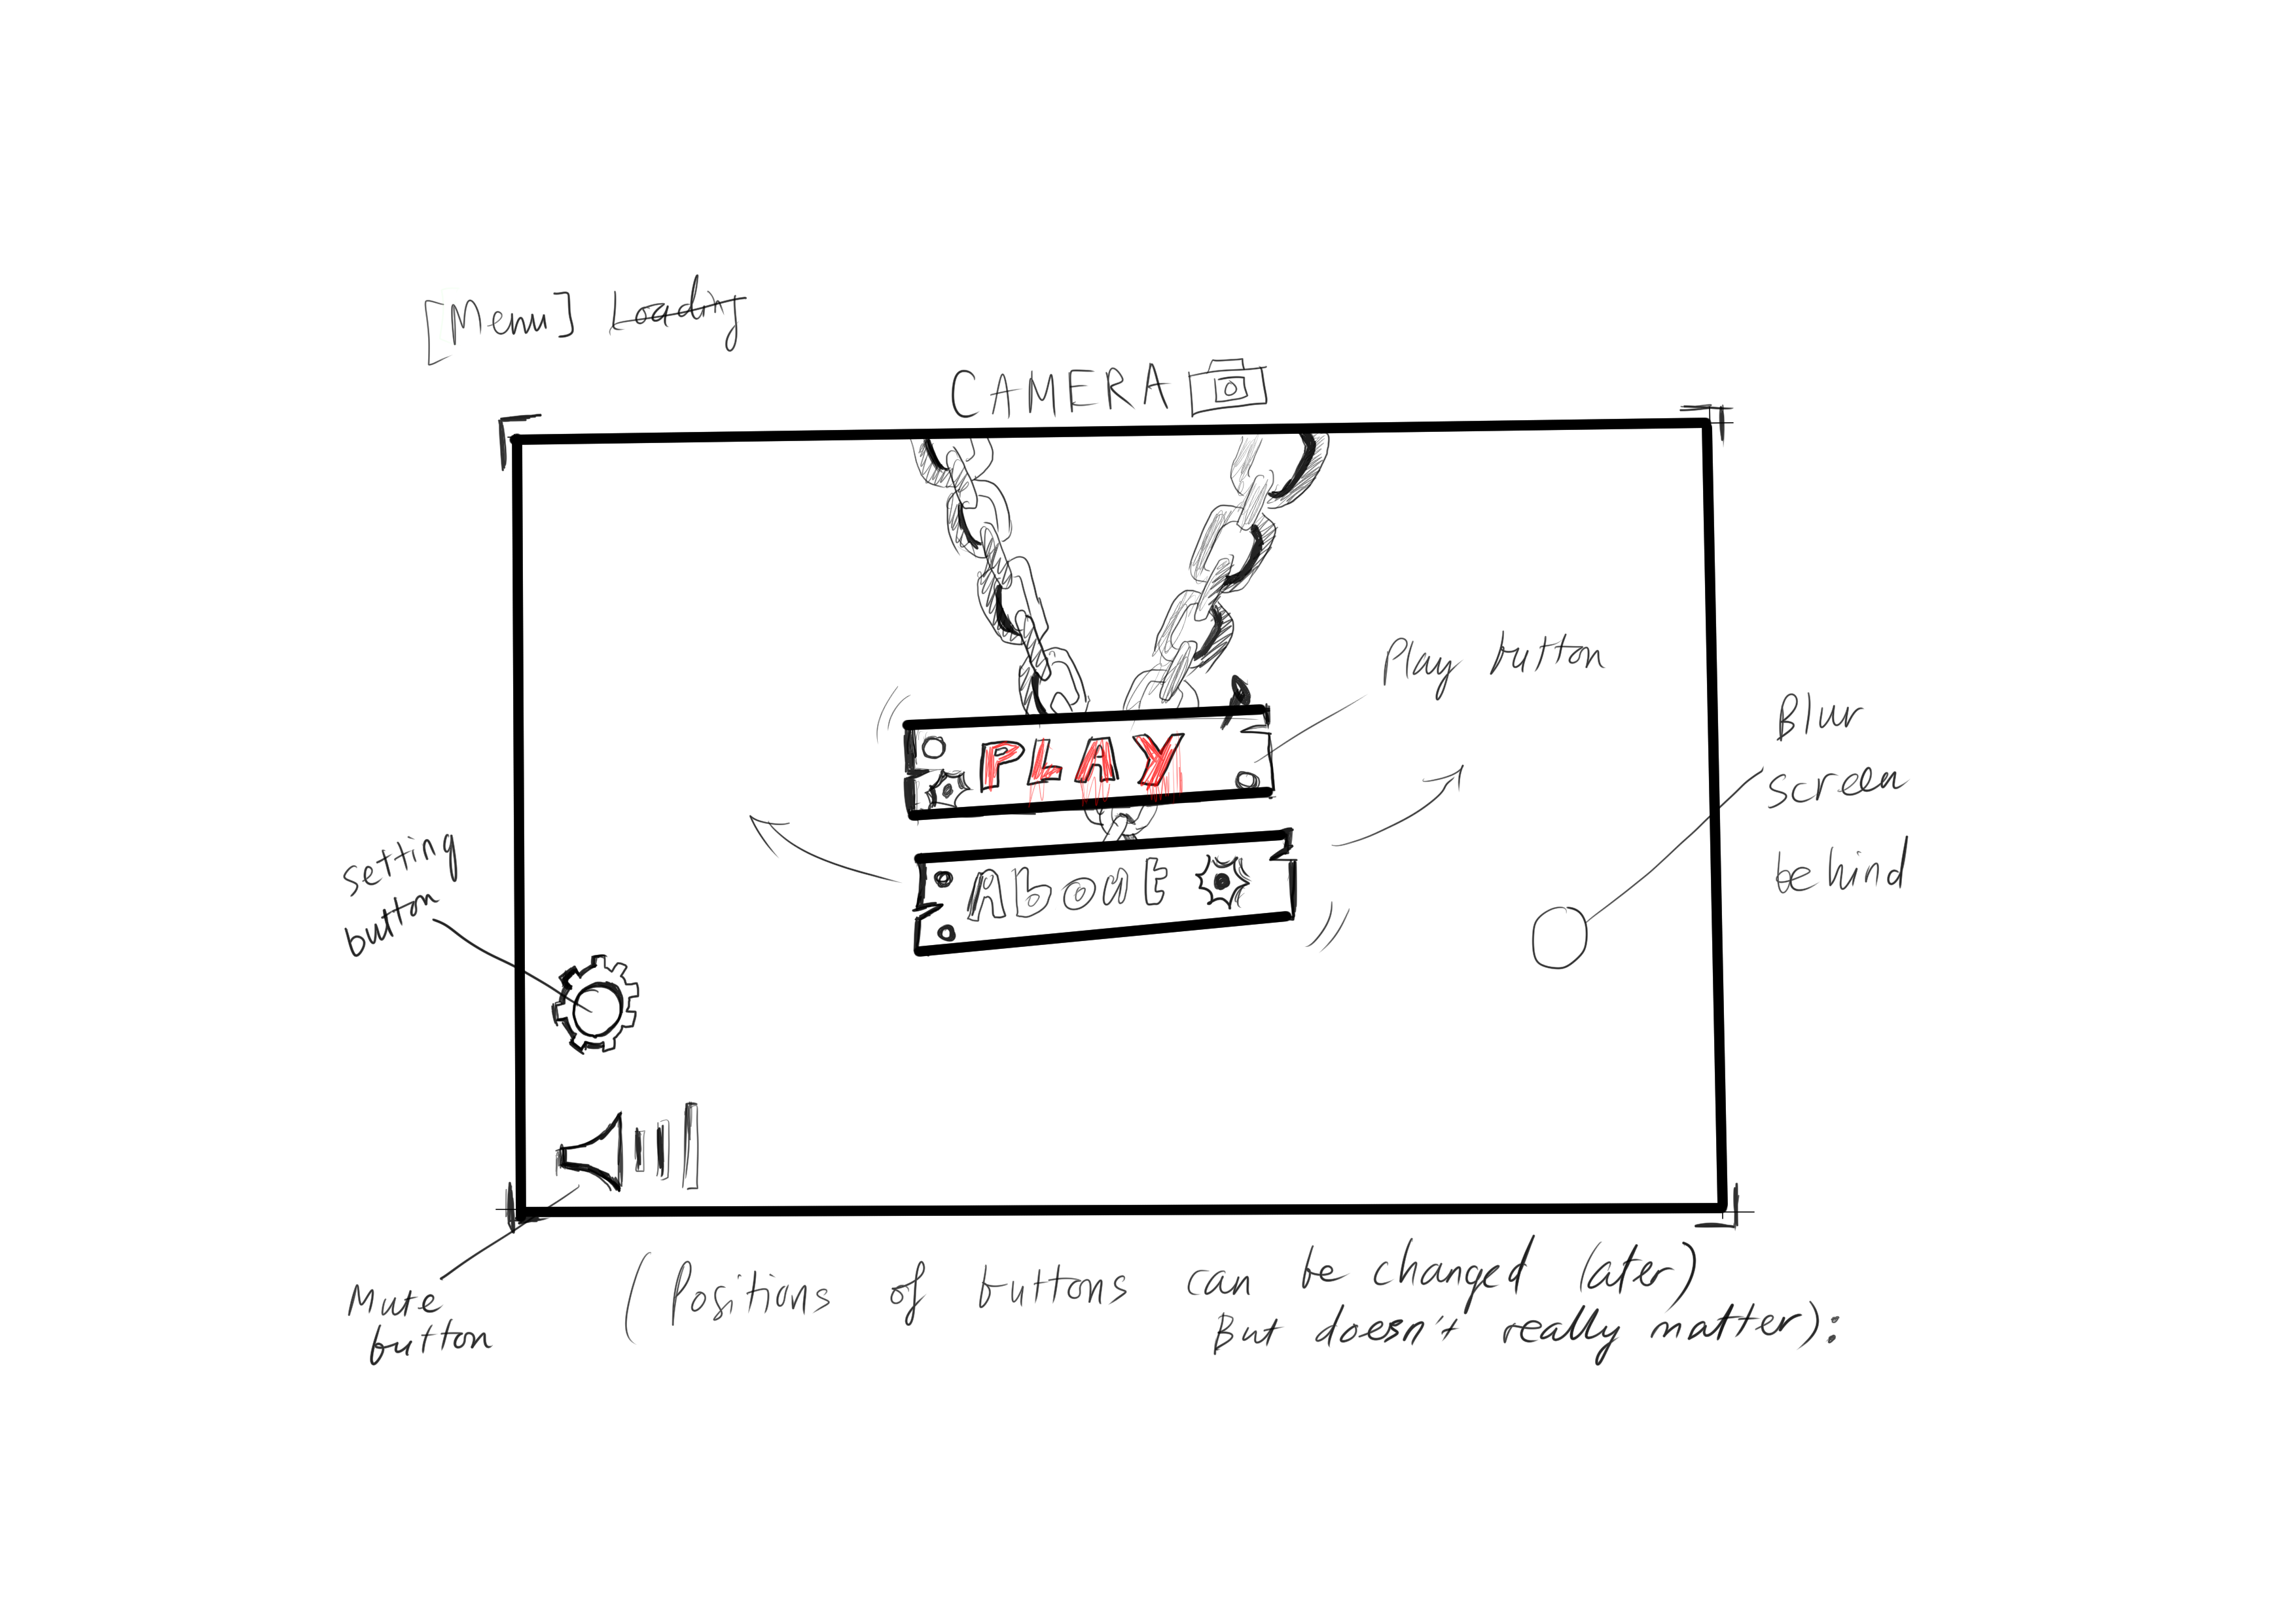 [Menu] Loading
CAMERA
Play button
Blur
screen
behind
PLAY
About
setting
button
Mute
button
(Positions of buttons can be changed later)
But doesn't really matter):